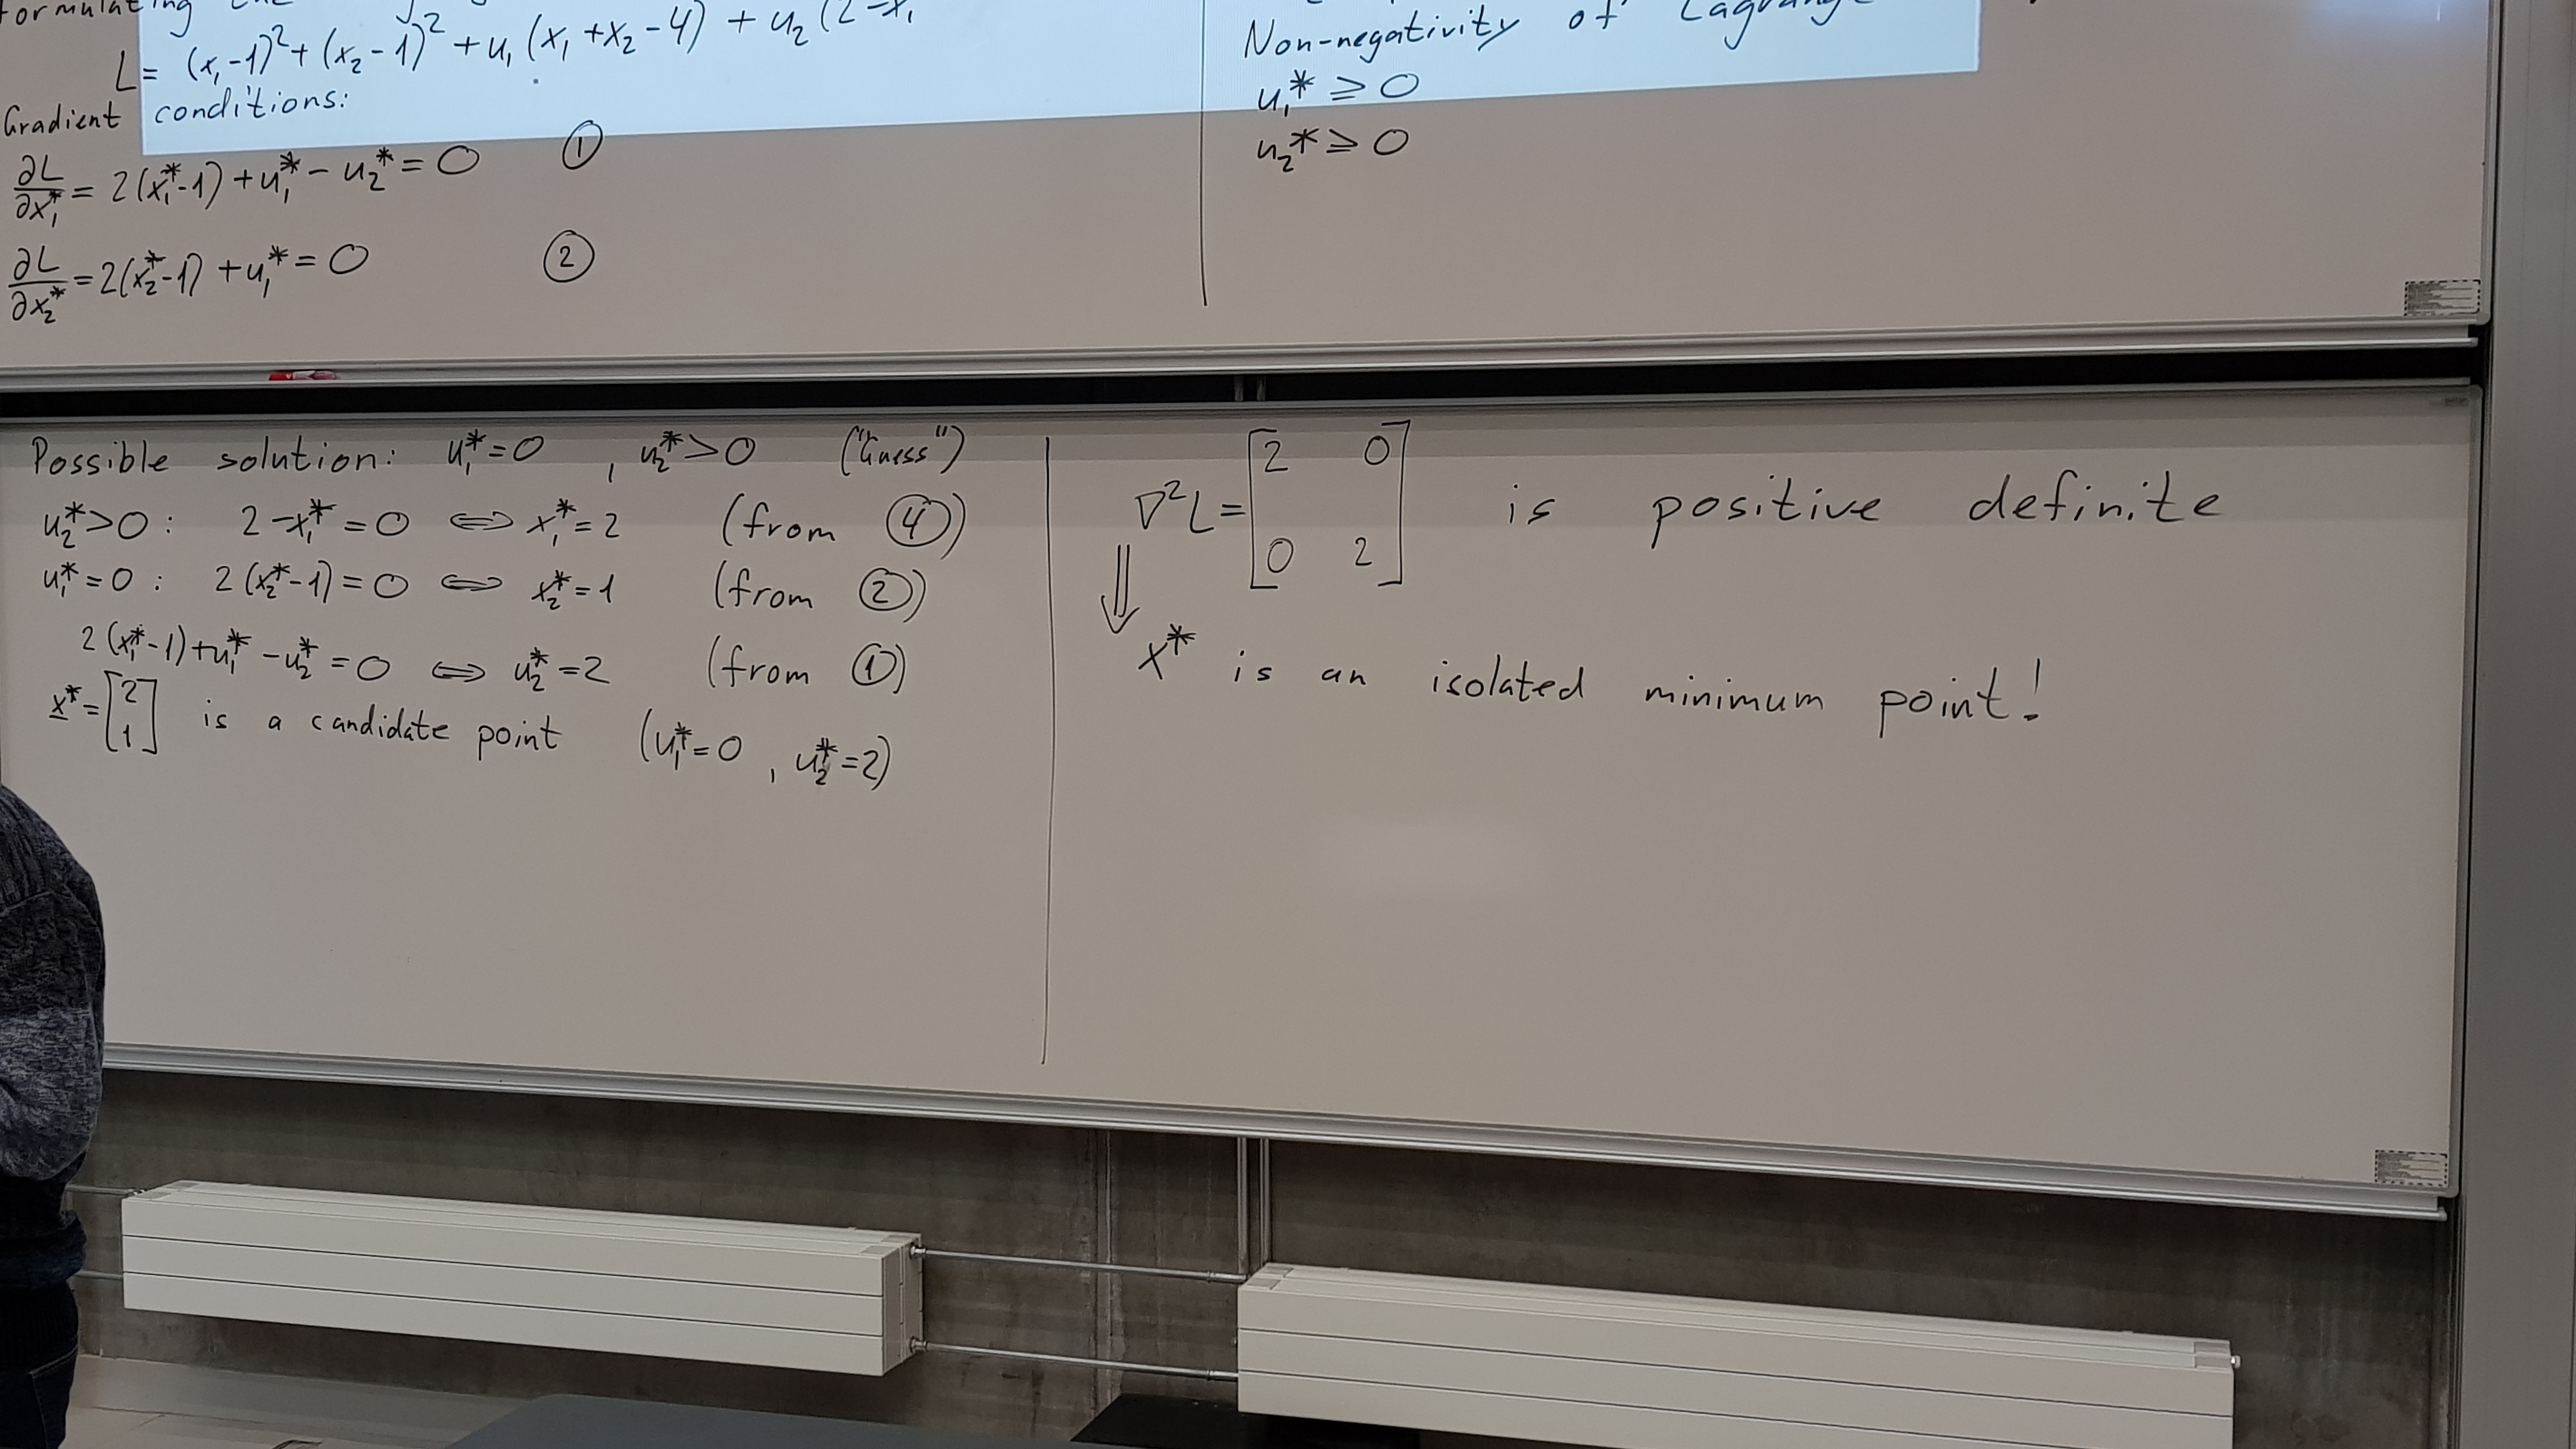 L = (x₁-1)² + (x₂-1)² + u₁ (x₁ + x₂ - 4) + u₂ (2 - x₁
Gradient conditions:
∂L/∂x₁* = 2(x₁*-1) + u₁* - u₂* = 0 ①
∂L/∂x₂* = 2(x₂*-1) + u₁* = 0 ②
Non-negativity of Lagrange
u₁* ≥ 0
u₂* ≥ 0
Possible solution: u₁* = 0 , u₂* > 0 ("Guess")
u₂* > 0 : 2 - x₁* = 0 ⟺ x₁* = 2 (from ④)
u₁* = 0 : 2(x₂*-1) = 0 ⟺ x₂* = 1 (from ②)
2(x₁*-1) + u₁* - u₂* = 0 ⟺ u₂* = 2 (from ①)
x* = [2 1] is a candidate point (u₁* = 0 , u₂* = 2)
∇²L = [2 0
0 2] is positive definite
⇓
x* is an isolated minimum point!